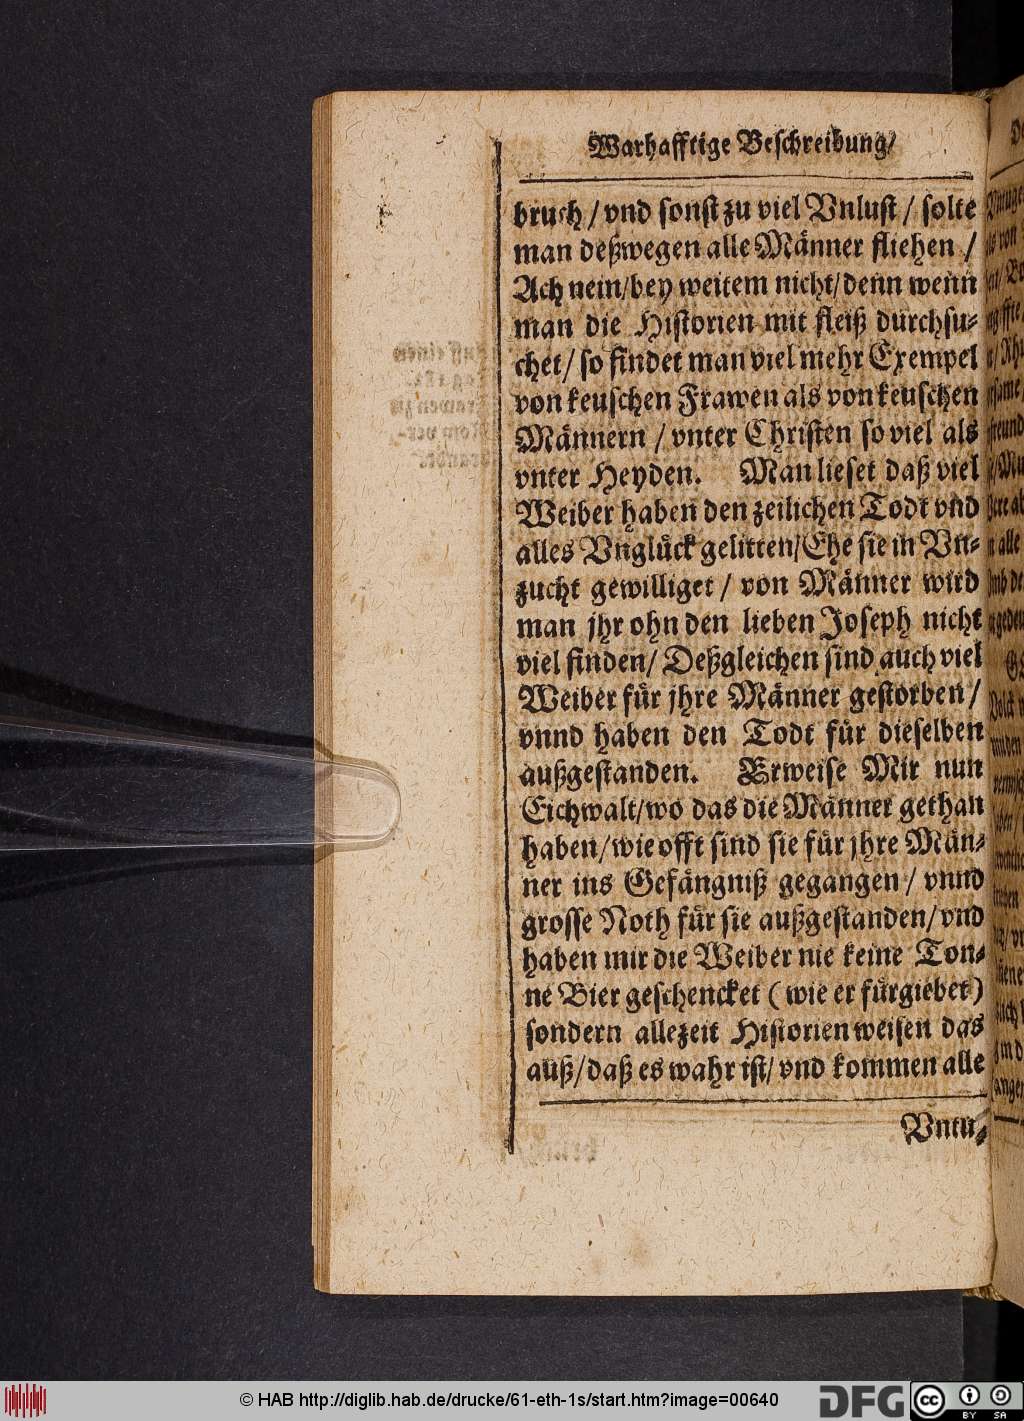 Warhafftige Beschreibung/
bruch / vnd sonst zu viel Vnlust / solte
man deßwegen alle Männer fliehen /
Ach nein/bey weitem nicht/denn wenn
man die Historien mit fleiß durchsu-
chet / so findet man viel mehr Exempel
von keuschen Frawen als von keuschen
Männern / vnter Christen so viel als
vnter Heyden. Man lieset daß viel
Weiber haben den zeilichen Todt vnd
alles Vnglück gelitten/Ehe sie in Vn-
zucht gewilliget / von Männer wird
man jhr ohn den lieben Joseph nicht
viel finden/ Deßgleichen sind auch viel
Weiber für jhre Männer gestorben /
vnnd haben den Todt für dieselben
außgestanden. Erweise Mir nun
Eichwalt/wo das die Männer gethan
haben/wie offt sind sie für jhre Män-
ner ins Gefängniß gegangen / vnnd
grosse Noth für sie außgestanden/vnd
haben mir die Weiber nie keine Ton-
ne Bier geschencket ( wie er fürgiebet )
sondern allezeit Historien weisen das
auß/daß es wahr ist/ vnd kommen alle
Vntu-
© HAB http://diglib.hab.de/drucke/61-eth-1s/start.htm?image=00640
DFG
cc BY SA